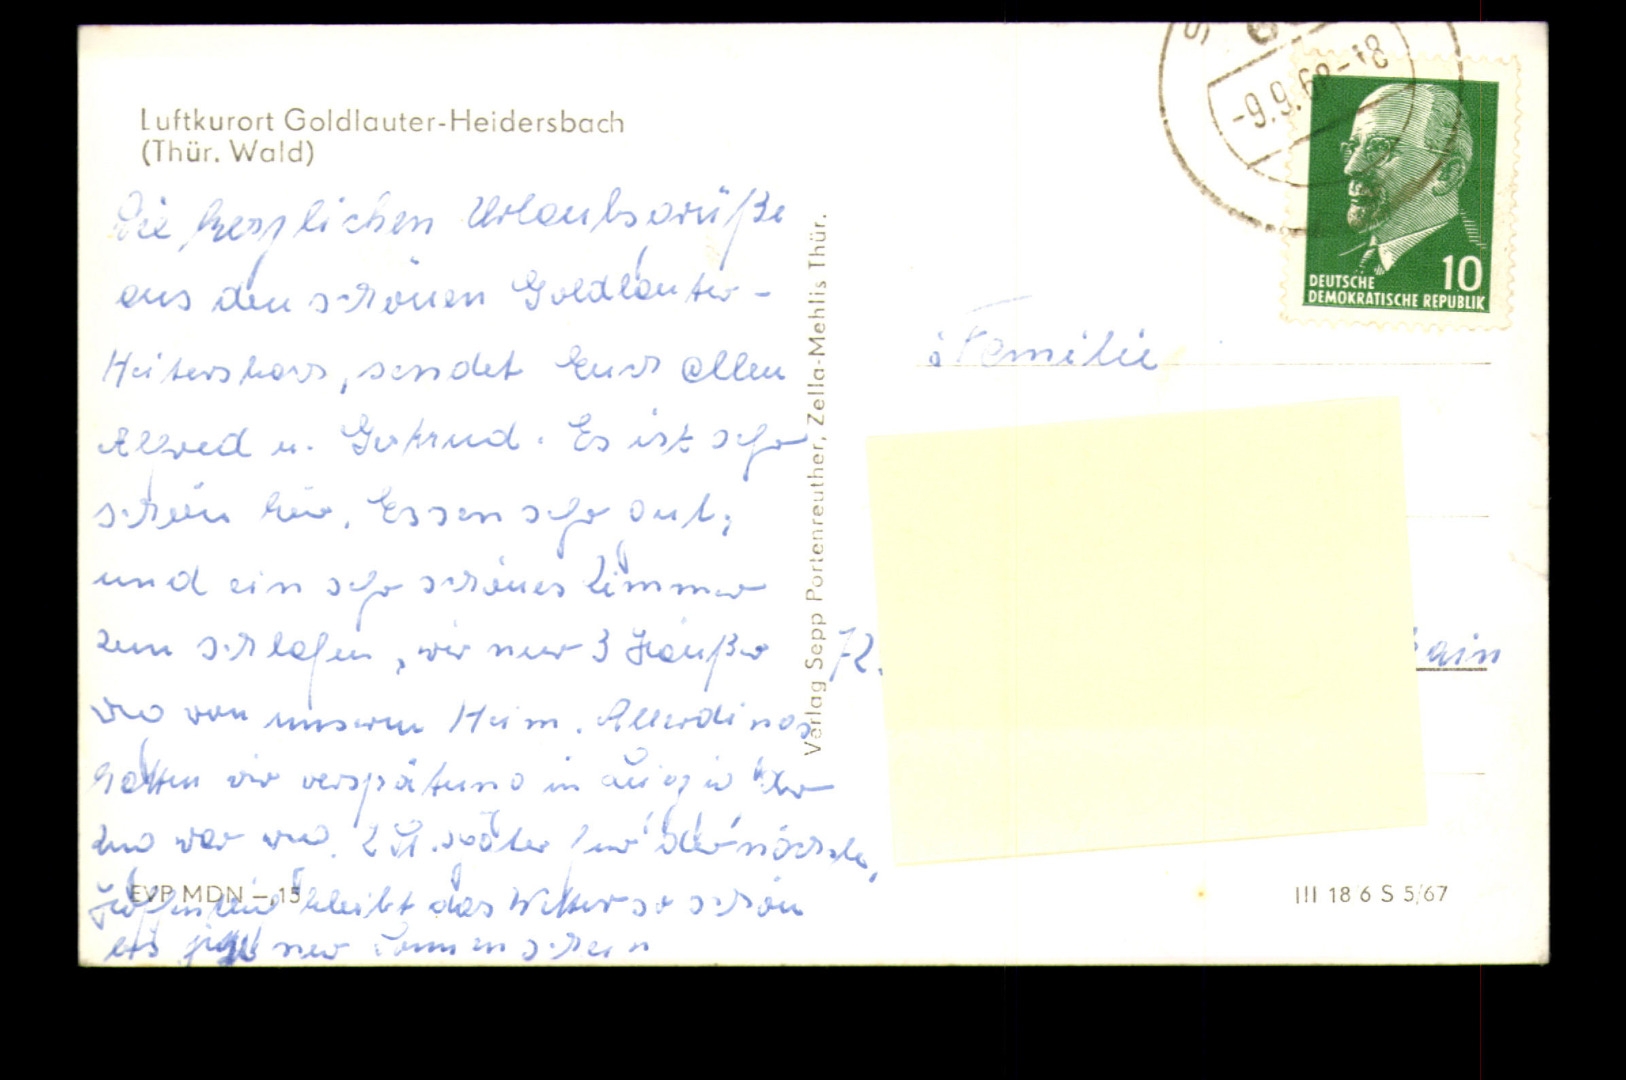 Luftkurort Goldlauter-Heidersbach
(Thür. Wald)
Die herzlichen Urlaubsgrüße
aus den schönen Goldlauter-
Heitersbach, sendet Euch allen
Alfred u. Gertrud. Es ist sehr
schön hier, Essen sehr gut,
und ein sehr schönes Zimmer
zum schlafen, wir nur 3 Häußer
von unserm Heim. Allerdings
hatten wir verspätung in Leipzig der
Zug war 2 St. später für der nächste,
bleibt das Wetter so schön
als nur Sonnenschein
EVP MDN -,15
Verlag Sepp Portenreuther, Zella-Mehlis Thür.
-9.9.68-18
10
DEUTSCHE
DEMOKRATISCHE REPUBLIK
Familie
72.
ain
III 18 6 S 5/67